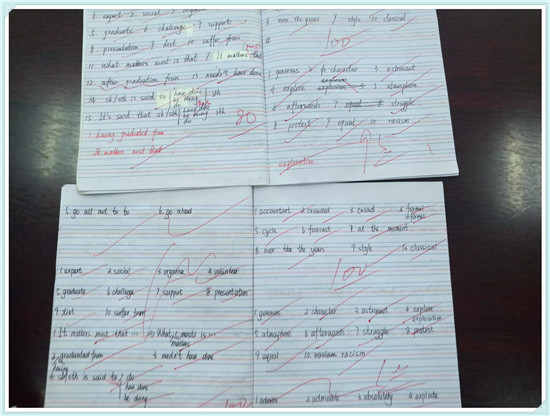 1. expert 2. social
5. graduate 6. challenge 7. support
8. presentation 9. diet 10. suffer from
11. What matters most is that / It matters
12. after graduation from 13. needn't have done
14. sb/sth is said to have done sth
be doing
do
15. It's said that sb/sth have done sth
be doing
do
80
1. having graduated from
It matters most that
8. over the years 9. style 10. classical
100
1. generous 2. character 3. astronaut
4. explore 5. atmosphere
6. afterwards 7. equal struggle
8. protest 9. equal 10. racism
95
exploration
5. go all out to 6. go ahead
1. expert 2. social 3. organise 4. volunteer
5. graduate 6. challenge 7. support 8. presentation
9. diet 10. suffer from
1. It matters most that ... What matters most is ...
2. graduated from 3. needn't have done
having
4. sb/sth is said to do
have done
be doing
1. accountant 2. crowded 3. crowd 4.
5. cycle 6. forecast 7. at the moment
8. over the years 9. style 10. classical
100
1. generous 2. character 3. astronaut 4. explore
exploration
5. atmosphere 6. afterwards 7. struggle 8. protest
9. equal 10. racism
1. admire 2. admirable 3. absolutely 4. explode